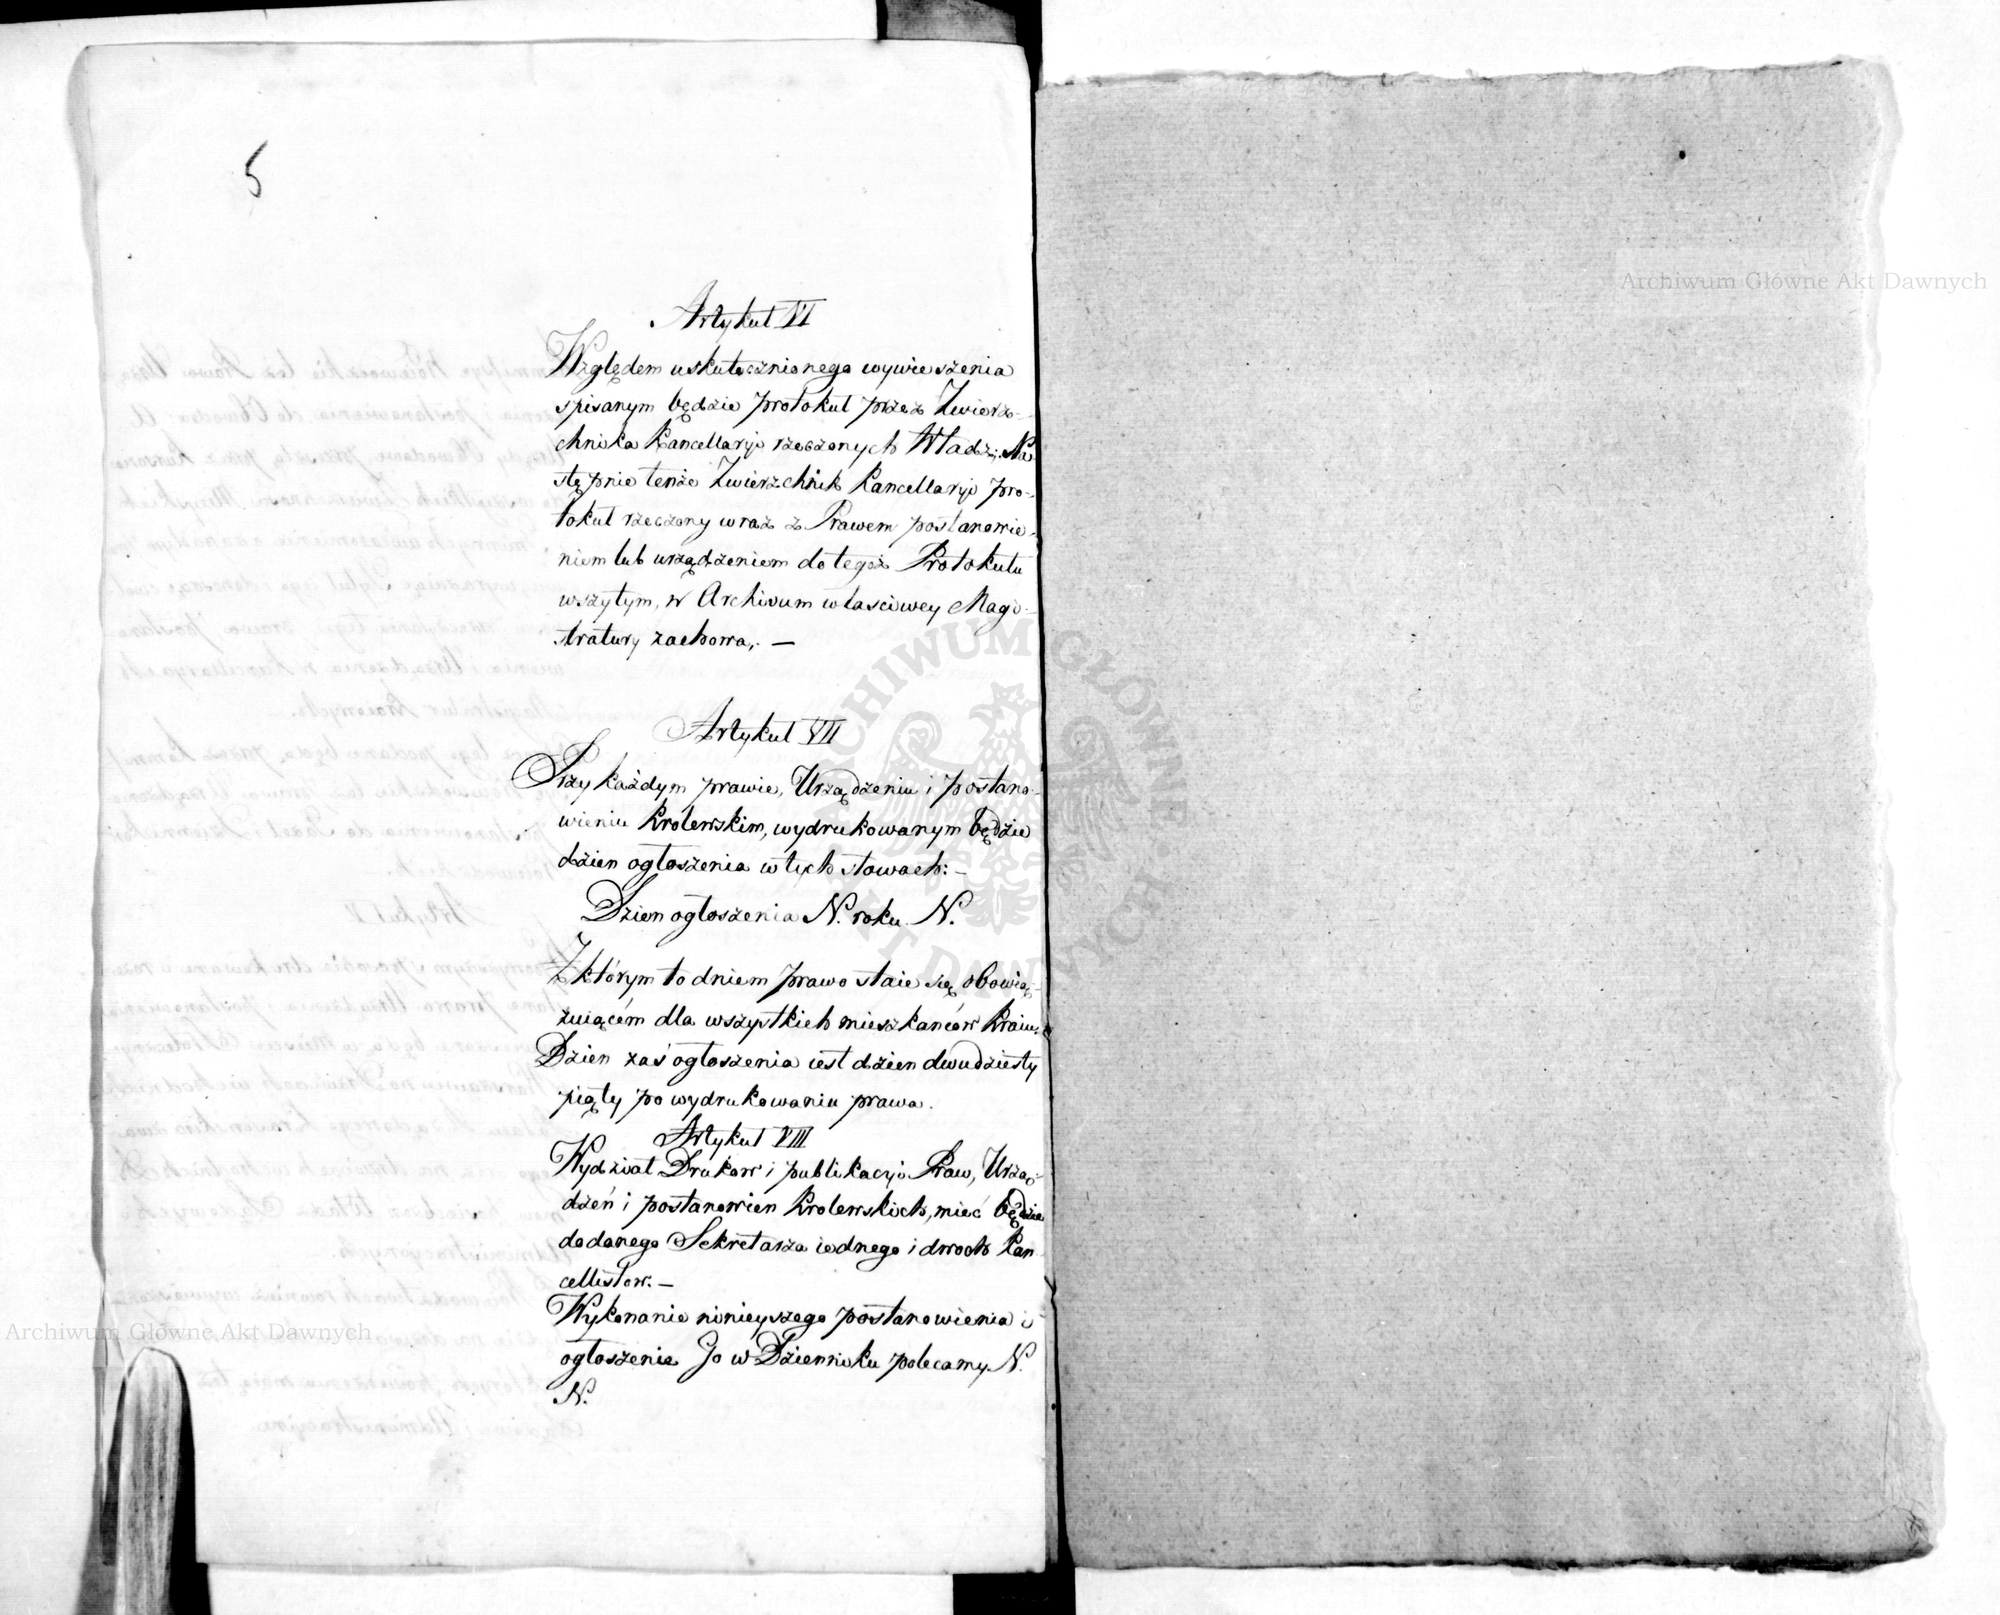 5
Artykuł VI
Względem uskutecznionego wywieszenia
spisanym będzie protokuł przez Zwierz-
chnika Kancellaryi rzeczonych Władz; Na-
stępnie tenże Zwierzchnik Kancellaryi pro-
tokuł rzeczony wraz z Prawem postanowie-
niem lub urządzeniem do tegoż Protokułu
wszytym, w Archivum właściwey Magi-
stratury zachowa. —
Artykuł VII
Przy każdym prawie, Urządzeniu i postano-
wieniu Krolewskim, wydrukowanym będzie
dzien ogłoszenia w tych słowach: —
Dzien ogłoszenia N. roku N.
Z którym to dniem prawo staie się obowią-
zuiącém dla wszystkich mieszkańców Kraiu.
Dzien zaś ogłoszenia iest dzien dwudziesty
piąty po wydrukowaniu prawa.
Artykuł VIII
Wydział Drukow i publikacyi Praw, Urzą-
dzeń i postanowien Krolewskich, mieć będzie
dodanego Sekretarza iednego i dwoch Kan-
cellistow. —
Wykonanie ninieyszego postanowienia i
ogłoszenie Jo w Dzienniku polecamy N.
N.
Archiwum Główne Akt Dawnych
Archiwum Główne Akt Dawnych
ARCHIWUM GŁÓWNE AKT DAWNYCH